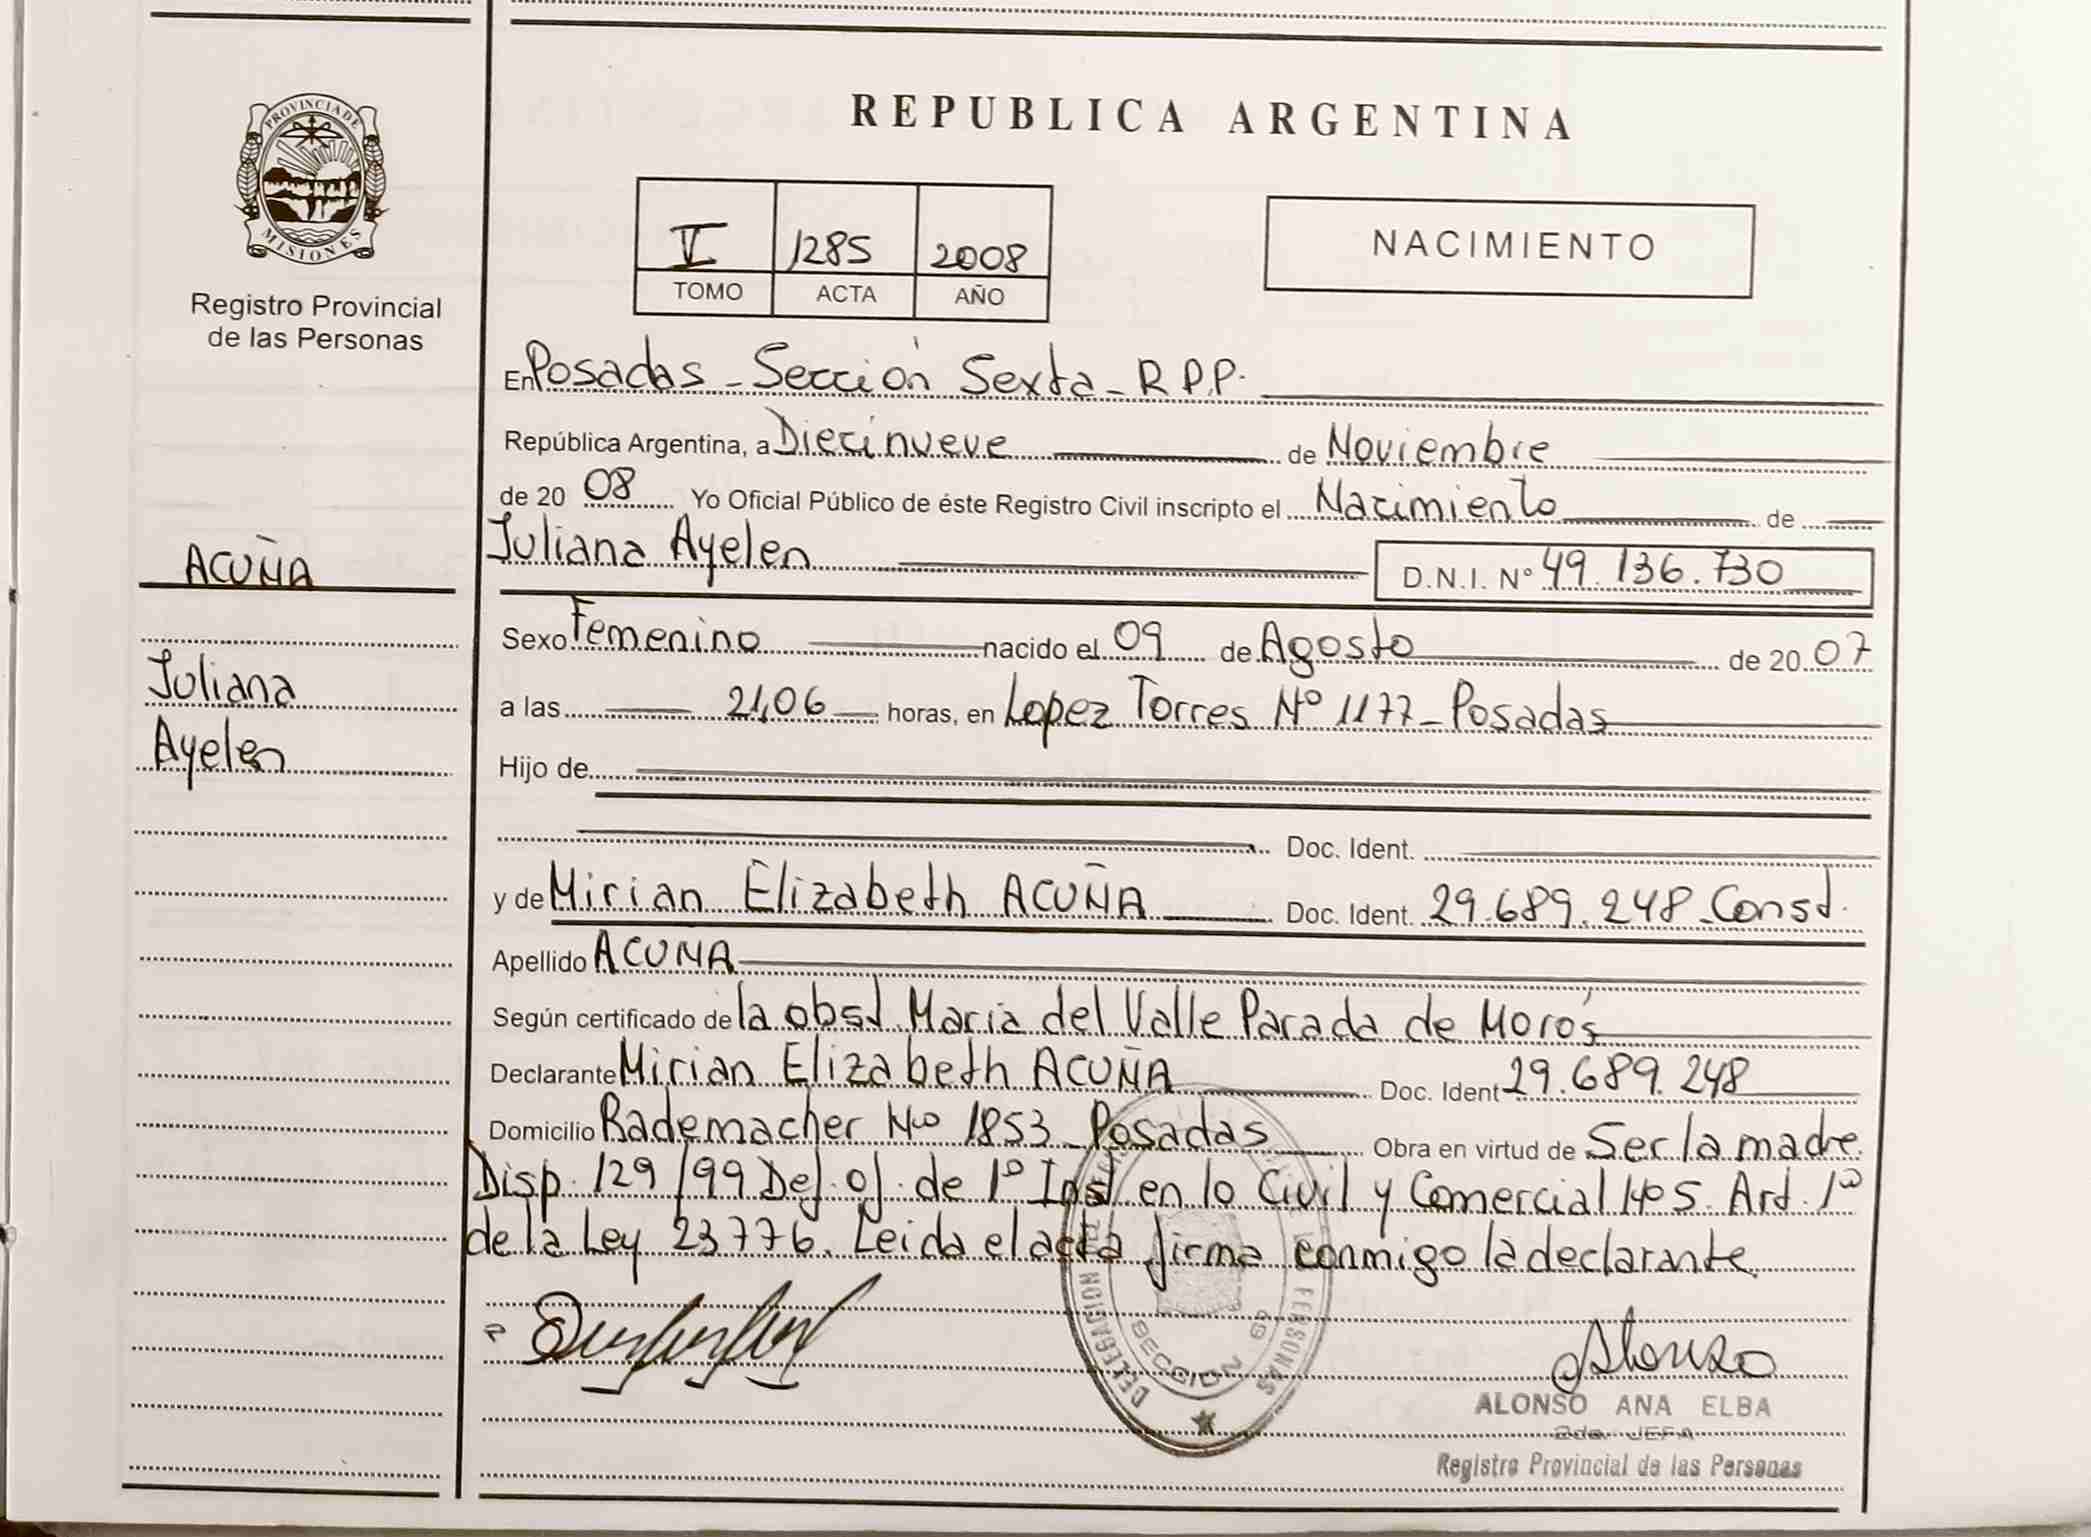 PROVINCIA DE
MISIONES
Registro Provincial
de las Personas
ACUÑA
Juliana
Ayelen
REPUBLICA ARGENTINA
V 1285 2008
TOMO ACTA AÑO
NACIMIENTO
En Posadas - Sección Sexta - R.P.P.
República Argentina, a Diecinueve de Noviembre
de 20 08 Yo Oficial Público de éste Registro Civil inscripto el Nacimiento de
Juliana Ayelen D.N.I. Nº 49.136.730
Sexo Femenino nacido el 09 de Agosto de 20 07
a las 21,06 horas, en Lopez Torres Nº 1177 - Posadas
Hijo de
Doc. Ident.
y de Mirian Elizabeth ACUÑA Doc. Ident. 29.689.248 - Const.
Apellido ACUÑA
Según certificado de la obst. Maria del Valle Parada de Moros
Declarante Mirian Elizabeth ACUÑA Doc. Ident 29.689.248
Domicilio Rademacher Nº 1853 - Posadas Obra en virtud de Ser la madre.
Disp. 129/99 Def. of. de 1º Inst en lo Civil y Comercial Nº 5. Art. 1º
de la Ley 23776. Leida el acta firma conmigo la declarante.
DELEGACION
PERSONAS
SECCION 6ª
Alonso
ALONSO ANA ELBA
2da. JEFA
Registro Provincial de las Personas